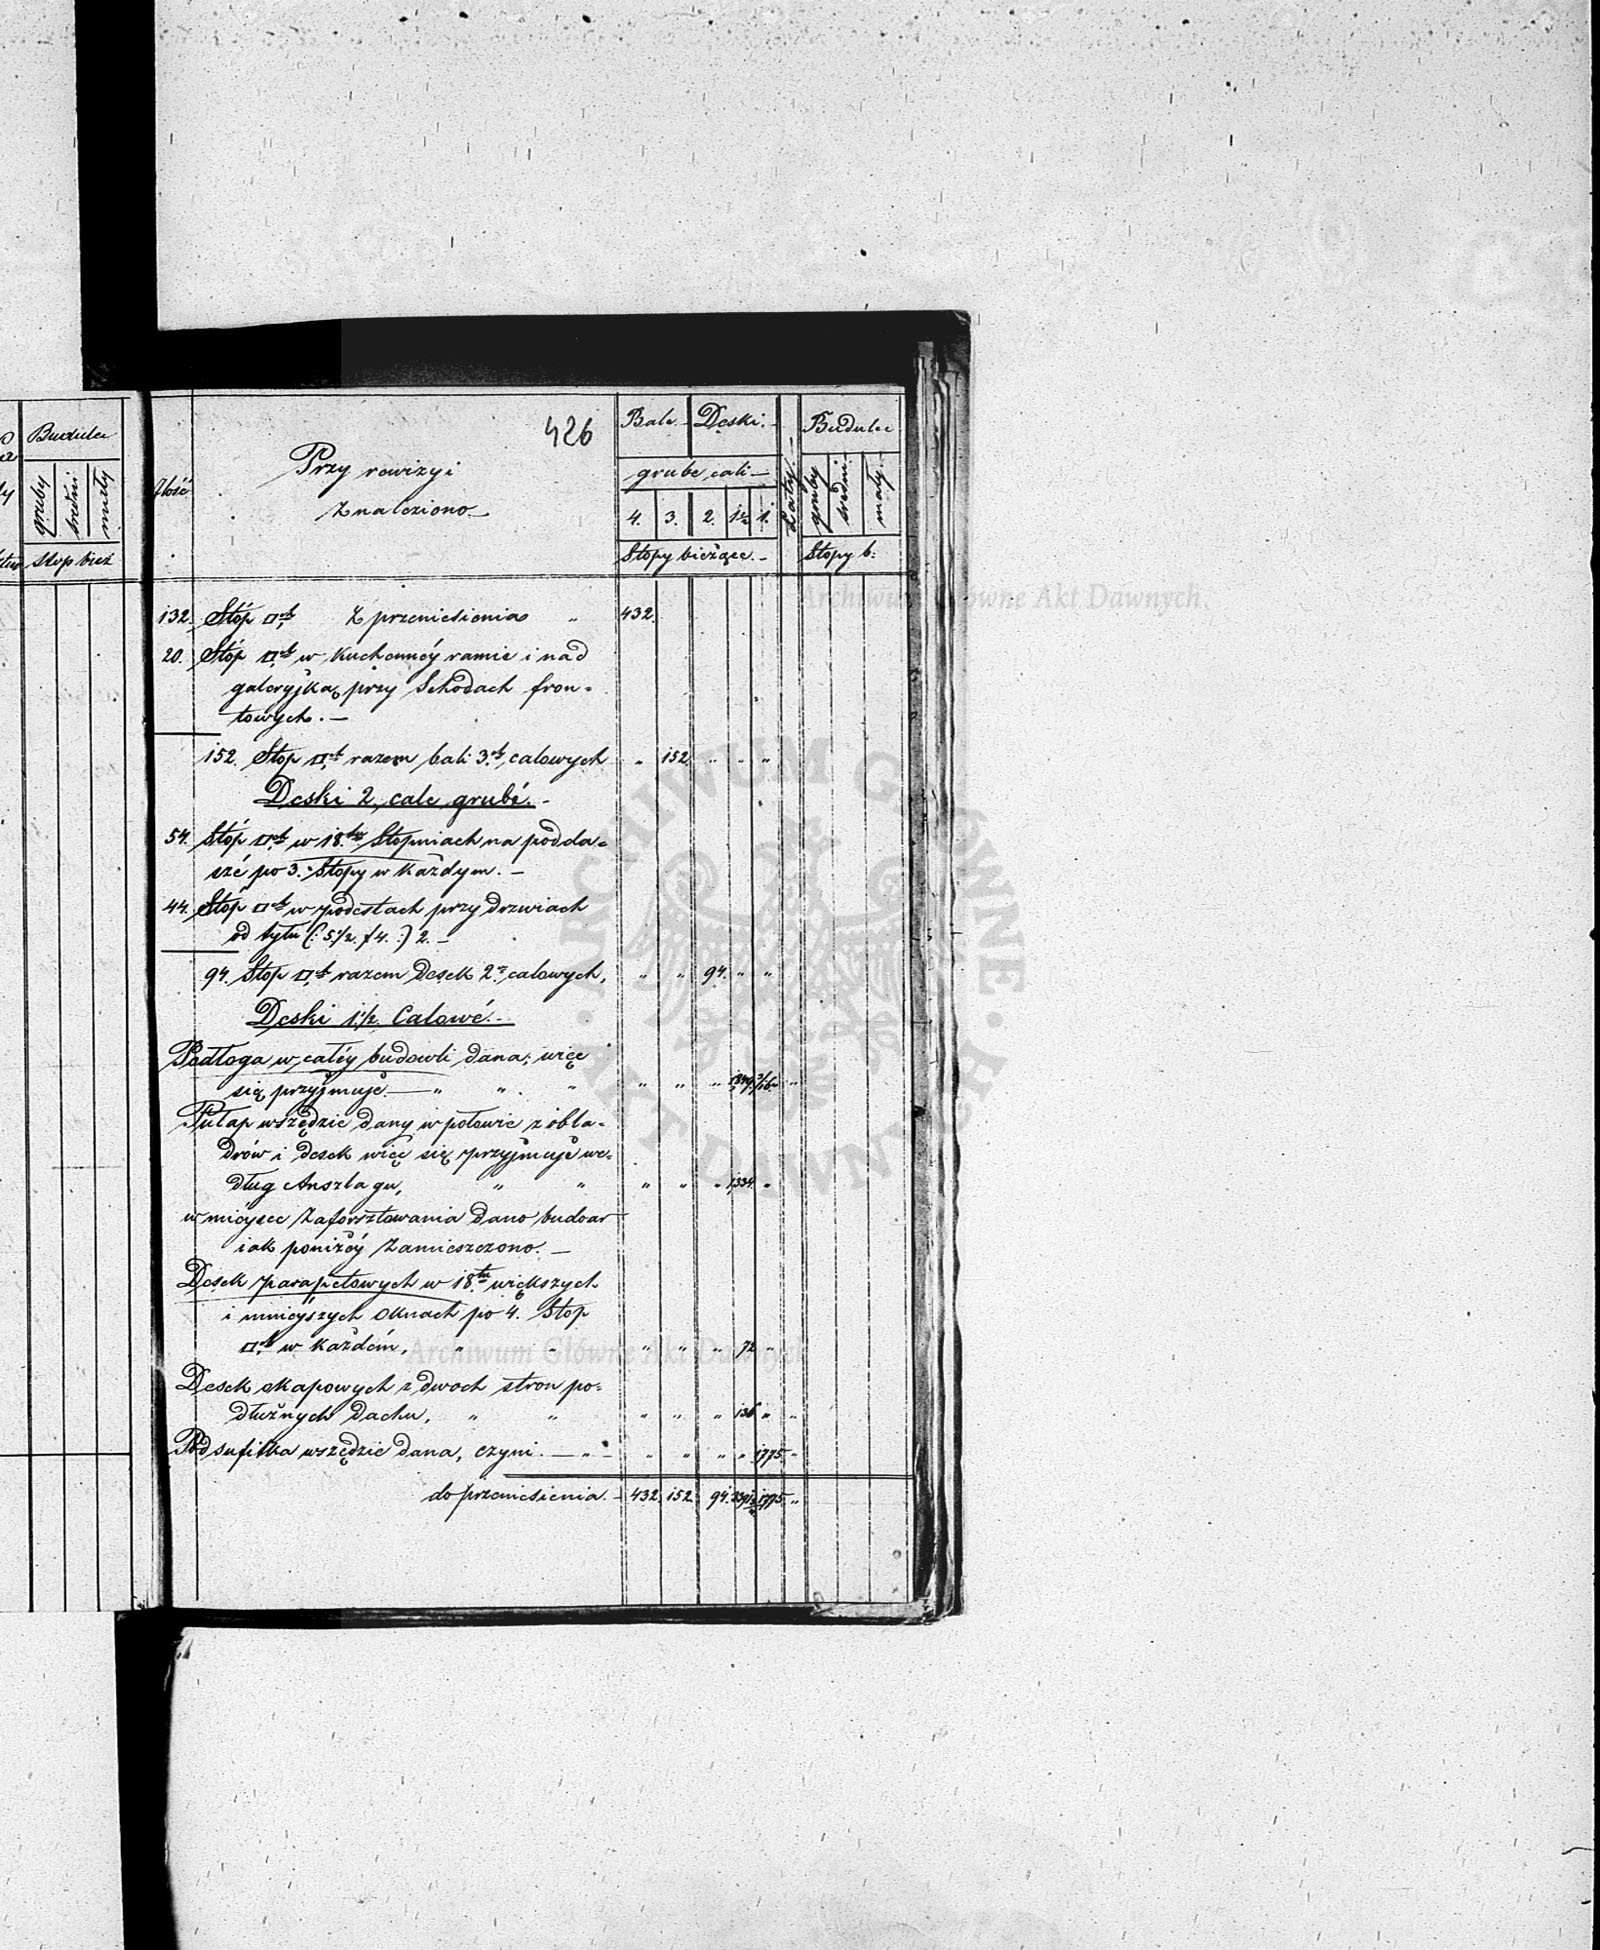 Budulec
gruby
średni
mały
Stop bież
426
Bale. Deski.
Budulec
Przy rewizyi
Ilość
Znaleziono.
grube cali
4. 3. 2. 1½ 1.
Łaty
gruby
średni
mały
Stopy bieżące. Stopy b:
132. Stóp □ch Z przeniesienia " 432.
20. Stóp □ch w Kuchennéy ramie i nad
galeryjką przy Schodach fron=
towych. —
152. Stóp □ch razem bali 3ch calowych " 152 " " "
Deski 2 cale grubé. —
54. Stóp □ch w 18tu Stopniach na podda=
szé po 3. Stopy w każdym. —
44. Stóp □ch w podestach przy drzwiach
od tyłu (: 5½ / 4. :) 2. —
94. Stop □ch razem Desek 2 calowych, " " 94. " "
Deski 1½ Calowé. —
Podłoga w całéy budowli dana, więc
się przyjmuje — " " " " " " 1849 3/16 "
Pułap wszędzie dany w połowie z obla=
drów i desek więc się przyjmuje we=
dług Anszlagu, " " " " " 1334 "
w mieysce Zaforsztowania dano budoar
iak poniżéy Zamieszczono. —
Desek parapetowych w 18tu większych
i mnieyszych oknach po 4. Stóp
□ch w każdém, " " " " " 72 "
Desek okapowych z dwóch stron po=
dłużnych Dachu, " " " " " 136 " "
Podsufitka wszędzie dana, czyni. — " — " " " " 1775 "
do przeniesienia. — 432 152 94. 1775 "
Archiwum Główne Akt Dawnych
Archiwum Główne Akt Dawnych
ARCHIWUM GŁÓWNE · AKT DAWNYCH ·